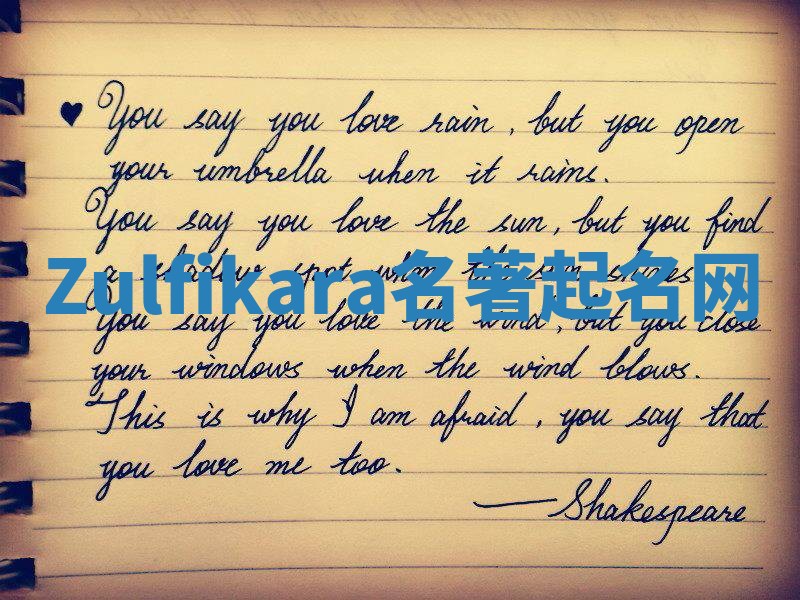 ♥ You say you love rain, but you open
your umbrella when it rains.
You say you love the sun, but you find
a shadow spot when the sun shines
Zulfikara名著起名网
You say you love the wind, but you close
your windows when the wind blows.
This is why I am afraid, you say that
you love me too.
— Shakespeare